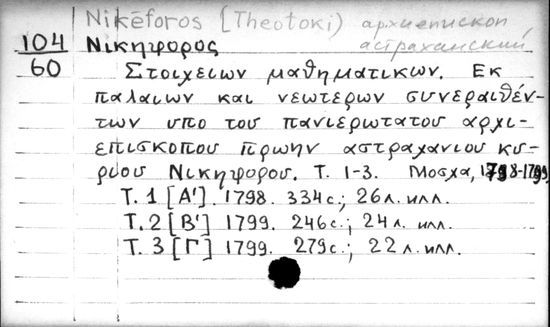 Nikēforos [Theotoki) архиепископ
104 Νικηφορος астраханский
60 Στοιχειων μαθηματικων. Εκ
παλαιων και νεωτερων συνεραιθέν-
των υπο του πανιερωτατου αρχι-
επισκοπου πρωην αστραχανιου κυ-
ριου Νικηφορου. Т. 1-3. Μοσχα, 1798-1799
Т. 1 [Α'] . 1798. 334 с.; 26 л. илл.
Т. 2 [Β'] 1799. 246 с.; 24 л. илл.
Т. 3 [Γ] 1799. 279 с.; 22 л. илл.